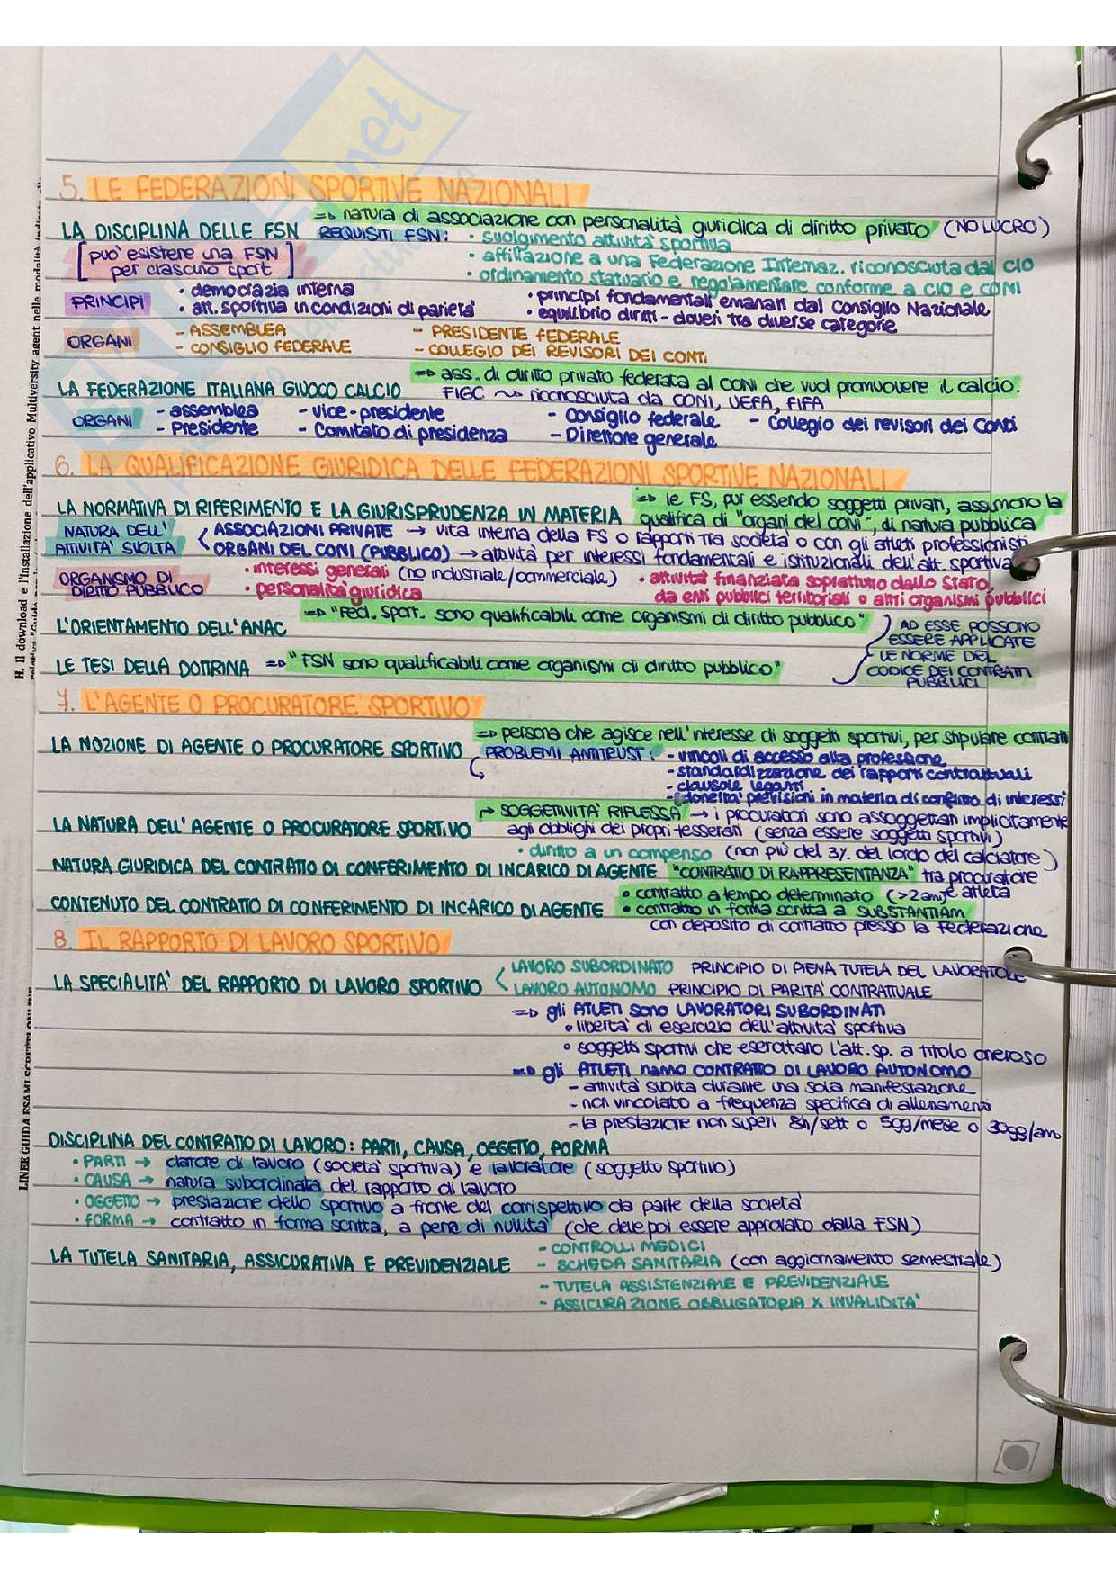 5. LE FEDERAZIONI SPORTIVE NAZIONALI
LA DISCIPLINA DELLE FSN => natura di associazione con personalità giuridica di diritto privato (NO LUCRO)
[può esistere una FSN per ciascuno sport]
REQUISITI FSN: • svolgimento attività sportiva
• affiliazione a una Federazione Internaz. riconosciuta dal CIO
• ordinamento statuario e regolamentare conforme a CIO e CONI
PRINCIPI • democrazia interna • principi fondamentali emanati dal Consiglio Nazionale
• att. sportiva in condizioni di parietà • equilibrio diritti - doveri tra diverse categorie
ORGANI - ASSEMBLEA - PRESIDENTE FEDERALE
- CONSIGLIO FEDERALE - COLLEGIO DEI REVISORI DEI CONTI
LA FEDERAZIONE ITALIANA GIUOCO CALCIO => ass. di diritto privato federata al CONI che vuol promuovere il calcio.
FIGC ~> riconosciuta da CONI, UEFA, FIFA
ORGANI - assemblea - vice-presidente - Consiglio federale - Collegio dei revisori dei Conti
- Presidente - Comitato di presidenza - Direttore generale
6. LA QUALIFICAZIONE GIURIDICA DELLE FEDERAZIONI SPORTIVE NAZIONALI
LA NORMATIVA DI RIFERIMENTO E LA GIURISPRUDENZA IN MATERIA => le FS, pur essendo soggetti privati, assumono la
qualifica di "organi del coni", di natura pubblica
NATURA DELL' ATTIVITA' SVOLTA < ASSOCIAZIONI PRIVATE → vita interna della FS o rapporti tra società o con gli atleti professionisti
ORGANI DEL CONI (PUBBLICO) → attività per interessi fondamentali e istituzionali dell'att. sportiva
ORGANISMO DI DIRITTO PUBBLICO • interessi generali (no industriale/commerciale) • attività finanziata soprattutto dallo Stato,
• personalità giuridica da enti pubblici territoriali o altri organismi pubblici
L'ORIENTAMENTO DELL'ANAC => "Fed. sport. sono qualificabili come organismi di diritto pubblico"
LE TESI DELLA DOTTRINA => "FSN sono qualificabili come organismi di diritto pubblico"
AD ESSE POSSONO
ESSERE APPLICATE
LE NORME DEL
CODICE DEI CONTRATTI
PUBBLICI
7. L'AGENTE O PROCURATORE SPORTIVO
LA NOZIONE DI AGENTE O PROCURATORE SPORTIVO => persona che agisce nell'interesse di soggetti sportivi, per stipulare contratti
PROBLEMI ANTITRUST: - vincoli di accesso alla professione
- standardizzazione dei rapporti contrattuali
- clausole leganti
- idoneità previsioni in materia di conflitto di interessi
LA NATURA DELL' AGENTE O PROCURATORE SPORTIVO → SOGGETTIVITA' RIFLESSA → i procuratori sono assoggettati implicitamente
agli obblighi dei propri tesserati (senza essere soggetti sportivi)
• diritto a un compenso (non più del 3% del lordo del calciatore)
NATURA GIURIDICA DEL CONTRATTO DI CONFERIMENTO DI INCARICO DI AGENTE "CONTRATTO DI RAPPRESENTANZA" tra procuratore e atleta
CONTENUTO DEL CONTRATTO DI CONFERIMENTO DI INCARICO DI AGENTE • contratto a tempo determinato (>2anni)
• contratto in forma scritta a SUBSTANTIAM
con deposito di contratto presso la federazione
8. IL RAPPORTO DI LAVORO SPORTIVO
LA SPECIALITA' DEL RAPPORTO DI LAVORO SPORTIVO < LAVORO SUBORDINATO PRINCIPIO DI PIENA TUTELA DEL LAVORATORE
LAVORO AUTONOMO PRINCIPIO DI PARITA' CONTRATTUALE
=> gli ATLETI sono LAVORATORI SUBORDINATI
• libertà di esercizio dell'attività sportiva
• soggetti sportivi che esercitano l'att. sp. a titolo oneroso
=> gli ATLETI hanno CONTRATTO DI LAVORO AUTONOMO
- attività svolta durante una sola manifestazione
- non vincolato a frequenza specifica di allenamenti
- la prestazione non superi 8h/sett o 5gg/mese o 30gg/anno
DISCIPLINA DEL CONTRATTO DI LAVORO: PARTI, CAUSA, OGGETTO, FORMA
• PARTI → datore di lavoro (società sportiva) e lavoratore (soggetto sportivo)
• CAUSA → natura subordinata del rapporto di lavoro
• OGGETTO → prestazione dello sportivo a fronte del corrispettivo da parte della società
• FORMA → contratto in forma scritta, a pena di nullità (che deve poi essere approvato dalla FSN)
LA TUTELA SANITARIA, ASSICURATIVA E PREVIDENZIALE - CONTROLLI MEDICI
- SCHEDA SANITARIA (con aggiornamento semestrale)
- TUTELA ASSISTENZIALE E PREVIDENZIALE
- ASSICURAZIONE OBBLIGATORIA X INVALIDITA'
H. Il download e l'installazione dell'applicativo Multiversity agent nelle modalità